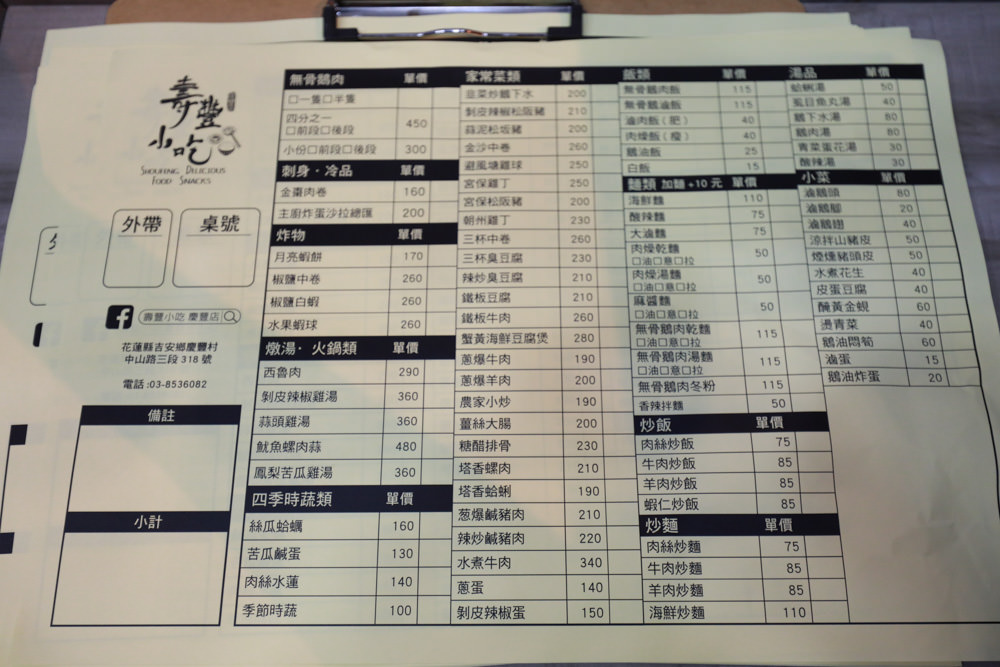 壽豐
小吃
SHOUFENG DELICIOUS
FOOD SNACKS
外帶
桌號
壽豐小吃 慶豐店
花蓮縣吉安鄉慶豐村
中山路三段 318 號
電話:03-8536082
備註
小計
無骨鵝肉 單價
□一隻□半隻
四分之一
□前段□後段 450
小份□前段□後段 300
刺身・冷品 單價
金棗肉卷 160
主廚炸蛋沙拉總匯 200
炸物 單價
月亮蝦餅 170
椒鹽中卷 260
椒鹽白蝦 260
水果蝦球 260
燉湯・火鍋類 單價
西魯肉 290
剝皮辣椒雞湯 360
蒜頭雞湯 360
魷魚螺肉蒜 480
鳳梨苦瓜雞湯 360
四季時蔬類 單價
絲瓜蛤蠣 160
苦瓜鹹蛋 130
肉絲水蓮 140
季節時蔬 100
家常菜類 單價
韭菜炒鵝下水 200
剝皮辣椒松阪豬 210
蒜泥松坂豬 200
金沙中卷 260
避風塘雞球 250
宮保雞丁 250
宮保松阪豬 200
朝州雞丁 230
三杯中卷 260
三杯臭豆腐 230
辣炒臭豆腐 210
鐵板豆腐 210
鐵板牛肉 260
蟹黃海鮮豆腐煲 280
蔥爆牛肉 190
蔥爆羊肉 200
農家小炒 190
薑絲大腸 200
糖醋排骨 230
塔香螺肉 210
塔香蛤蜊 190
蔥爆鹹豬肉 210
辣炒鹹豬肉 220
水煮牛肉 340
蔥蛋 140
剝皮辣椒蛋 150
飯類 單價
無骨鵝肉飯 115
無骨鵝滷飯 115
滷肉飯(肥) 40
肉燥飯(瘦) 40
鵝油飯 25
白飯 15
麵類 加麵+10 元 單價
海鮮麵 110
酸辣麵 75
大滷麵 75
肉燥乾麵
□油□意□拉 50
肉燥湯麵
□油□意□拉 50
麻醬麵
□油□意□拉 50
無骨鵝肉乾麵
□油□意□拉 115
無骨鵝肉湯麵
□油□意□拉 115
無骨鵝肉冬粉 115
香辣拌麵 50
炒飯 單價
肉絲炒飯 75
牛肉炒飯 85
羊肉炒飯 85
蝦仁炒飯 85
炒麵 單價
肉絲炒麵 75
牛肉炒麵 85
羊肉炒麵 85
海鮮炒麵 110
湯品 單價
蛤蜊湯 50
虱目魚丸湯 40
鵝下水湯 80
鵝肉湯 80
青菜蛋花湯 30
酸辣湯 30
小菜 單價
滷鵝頭 80
滷鵝腳 20
滷鵝翅 40
涼拌山豬皮 50
煙燻豬頭皮 50
水煮花生 40
皮蛋豆腐 40
醃黃金蜆 60
燙青菜 40
鵝油悶筍 60
滷蛋 15
鵝油炸蛋 20